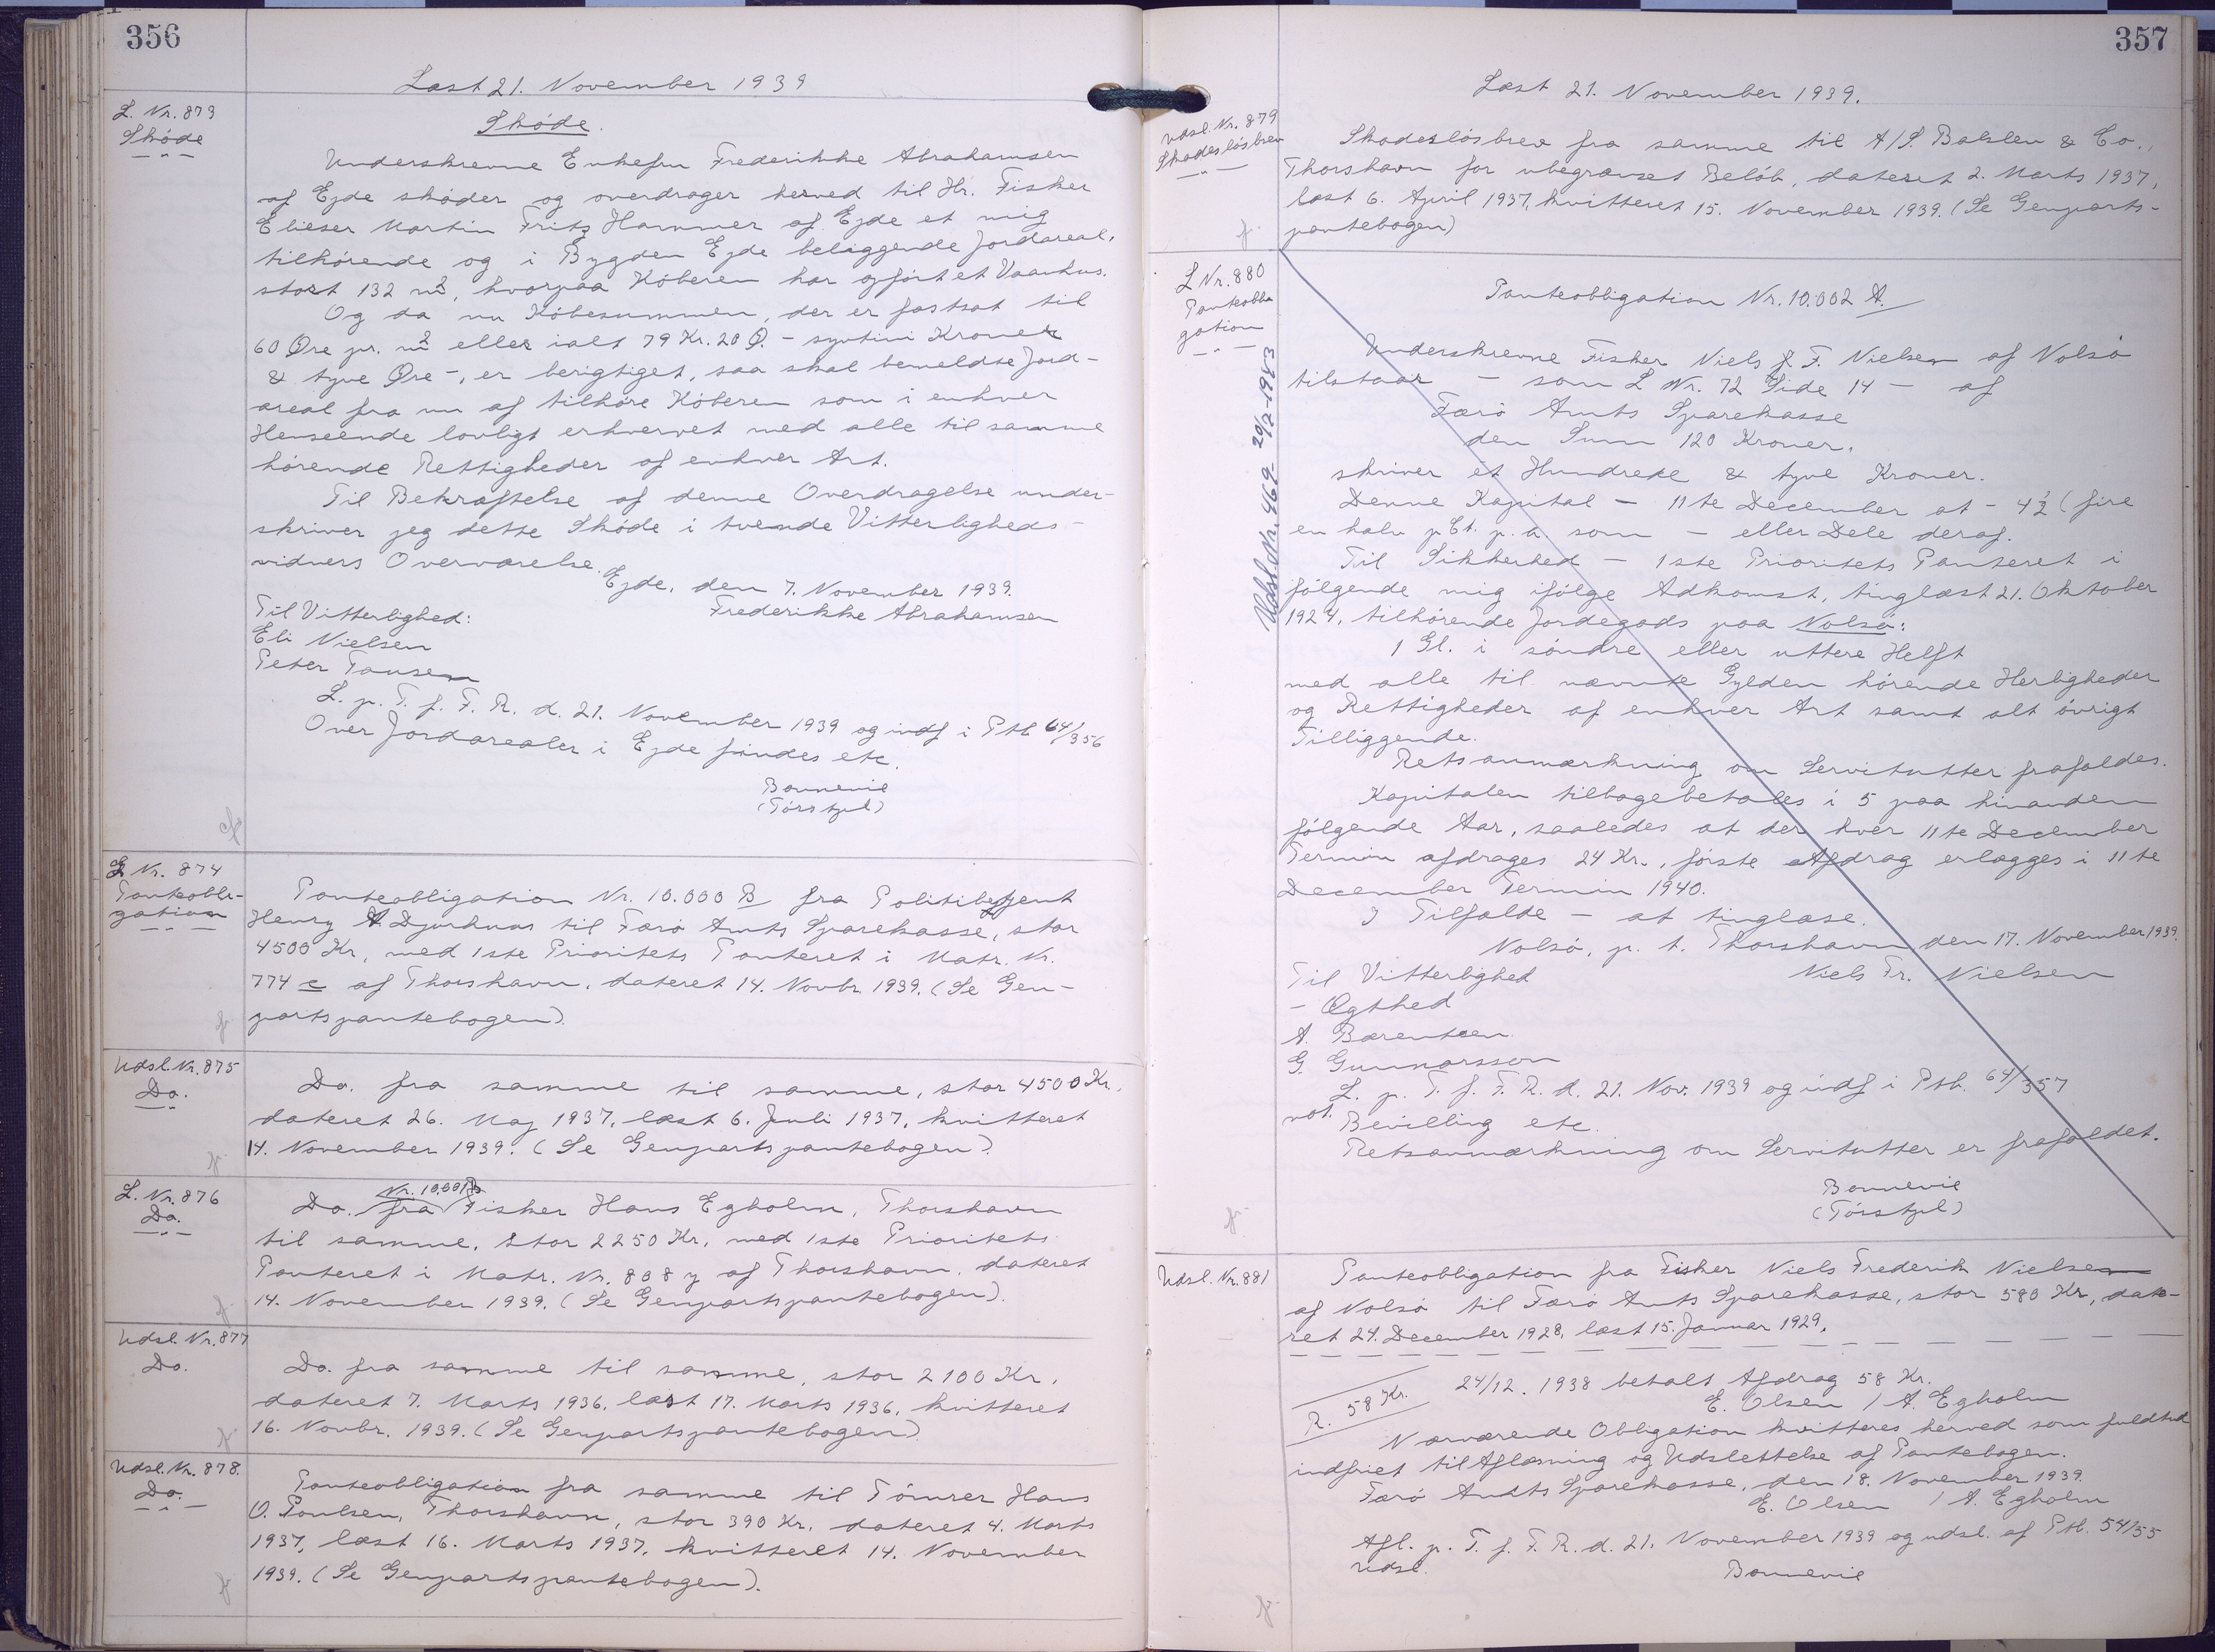 356
Læst 21. November 1939
L. Nr. 873
Skøde
Skøde.
Underskrevne Enkefru Frederikke Abrahamsen
af Ejde skøder og overdrager herved til Hr. Fisker
Elieser Martin Frits Hammer af Ejde et mig
tilhørende og i Bygden Ejde beliggende Jordareal,
stort 132 m², hvorpaa Køberen har opført et Vaanhus.
Og da nu Købesummen, der er fastsat til
60 Øre pr. m² eller ialt 79 Kr. 20 Ø. - syvtini Kroner
& tyve Øre -, er berigtiget, saa skal bemeldte Jord-
areal fra nu af tilhøre Køberen som i enhver
Henseende lovligt erhvervet med alle til samme
hørende Rettigheder af enhver Art.
Til Bekræftelse af denne Overdragelse under-
skriver jeg dette Skøde i tvende Vitterligheds-
vidners Overværelse.
Ejde, den 7. November 1939.
Til Vitterlighed: Frederikke Abrahamsen
Eli Nielsen
Peter Tausen
L. p. T. f. F. R. d. 21. November 1939 og indf i Ptb 64/356
Over Jordarealer i Ejde findes etc.
Bonnevie
(Tórs tpl)
L Nr. 874
Panteobli-
gation
Panteobligation Nr. 10.000 B fra Politibetjent
Henry A Djurhuus til Færø Amts Sparekasse, stor
4500 Kr, med 1ste Prioritets Panteret i Matr. Nr.
774 c af Thorshavn, dateret 14. Novbr. 1939. (Se Gen-
partspantebogen).
Udsl. Nr. 875
Do.
Do. fra samme til samme, stor 4500 Kr.,
dateret 26. Maj 1937, læst 6. Juli 1937, kvitteret
14. November 1939. (Se Genpartspantebogen).
L. Nr. 876
Do.
Nr. 10.001 B
Do. fra Fisker Hans Egholm, Thorshavn
til samme, stor 2250 Kr, med 1ste Prioritets
Panteret i Matr. Nr. 808 y af Thorshavn, dateret
14. November 1939. (Se Genpartspantebogen).
Udsl. Nr. 877
Do.
Do. fra samme til samme, stor 2100 Kr,
dateret 7. Marts 1936, læst 17. Marts 1936, kvitteret
16. Novbr. 1939. (Se Genpartspantebogen)
Udsl. Nr. 878.
Do.
Panteobligation fra samme til Tømrer Hans
O. Poulsen, Thorshavn, stor 390 Kr, dateret 4. Marts
1937, læst 16. Marts 1937, kvitteret 14. November
1939. (Se Genpartspantebogen).
357
Læst 21. November 1939.
Udsl. Nr. 879
Skadesløsbrev
Skadesløsbrev fra samme til A/S. Balslev & Co.,
Thorshavn for ubegrænset Beløb, dateret 2. Marts 1937,
læst 6. April 1937, kvitteret 15. November 1939. (Se Genparts-
pantebogen)
L Nr. 880
Panteobli
gation
Udsl. Nr. 469 20/2-1943
Panteobligation Nr. 10.002 A.
Underskrevne Fisker Niels J. F. Nielsen af Nolsø
tilstaar - som L Nr. 72 Side 14 - af
Færø Amts Sparekasse
den Sum 120 Kroner.
skriver et Hundrede & tyve Kroner.
Denne Kapital - 11te December at - 4½ (fire
en halv pCt. p. a. som - eller Dele deraf.
Til Sikkerhed - 1ste Prioritets Panteret i
følgende mig ifølge Adkomst, tinglæst 21. Oktober
1924, tilhørende Jordegods paa Nolsø:
1 Gl. i søndre eller yttere Helft
med alle til nævnte Gylden hørende Herligheder
og Rettigheder af enhver Art samt alt øvrigt
Tilliggende.
Retsanmærkning om Servitutter frafaldes.
Kapitalen tilbagebetales i 5 paa hinanden
følgende Aar, saaledes at der hver 11te December
Termin afdrages 24 Kr., første Afdrag erlægges i 11te
December Termin 1940.
I Tilfælde - at tinglæse.
Nolsø, p. t. Thorshavn den 17. November 1939.
Til Vitterlighed Niels Fr. Nielsen
- Ægthed
A. Bærentsen
G. Gunnarsson
L. p. T. f. F. R. d. 21. Nov. 1939 og indf i Ptb. 64/357
not. Bevilling etc.
Retsanmærkning om Servitutter er frafaldet.
Bonnevie
(Tórs tpl)
Udsl. Nr. 881
Panteobligation fra Fisker Niels Frederik Nielsen
af Nolsø til Færø Amts Sparekasse, stor 580 Kr, date-
ret 24. December 1928, læst 15. Januar 1929,
R. 58 Kr. 24/12. 1938 betalt Afdrag 58 Kr.
E. Olsen / A. Egholm
Nærværende Obligation kvitteres herved som fuldtud
indfriet til Aflæsning og Udslettelse af Pantebogen.
Færø Amts Sparekasse, den 18. November 1939.
E. Olsen / A. Egholm
Afl. p. T. f. F. R. d. 21. November 1939 og udsl. af Ptb. 54/55
Udsl.
Bonnevie